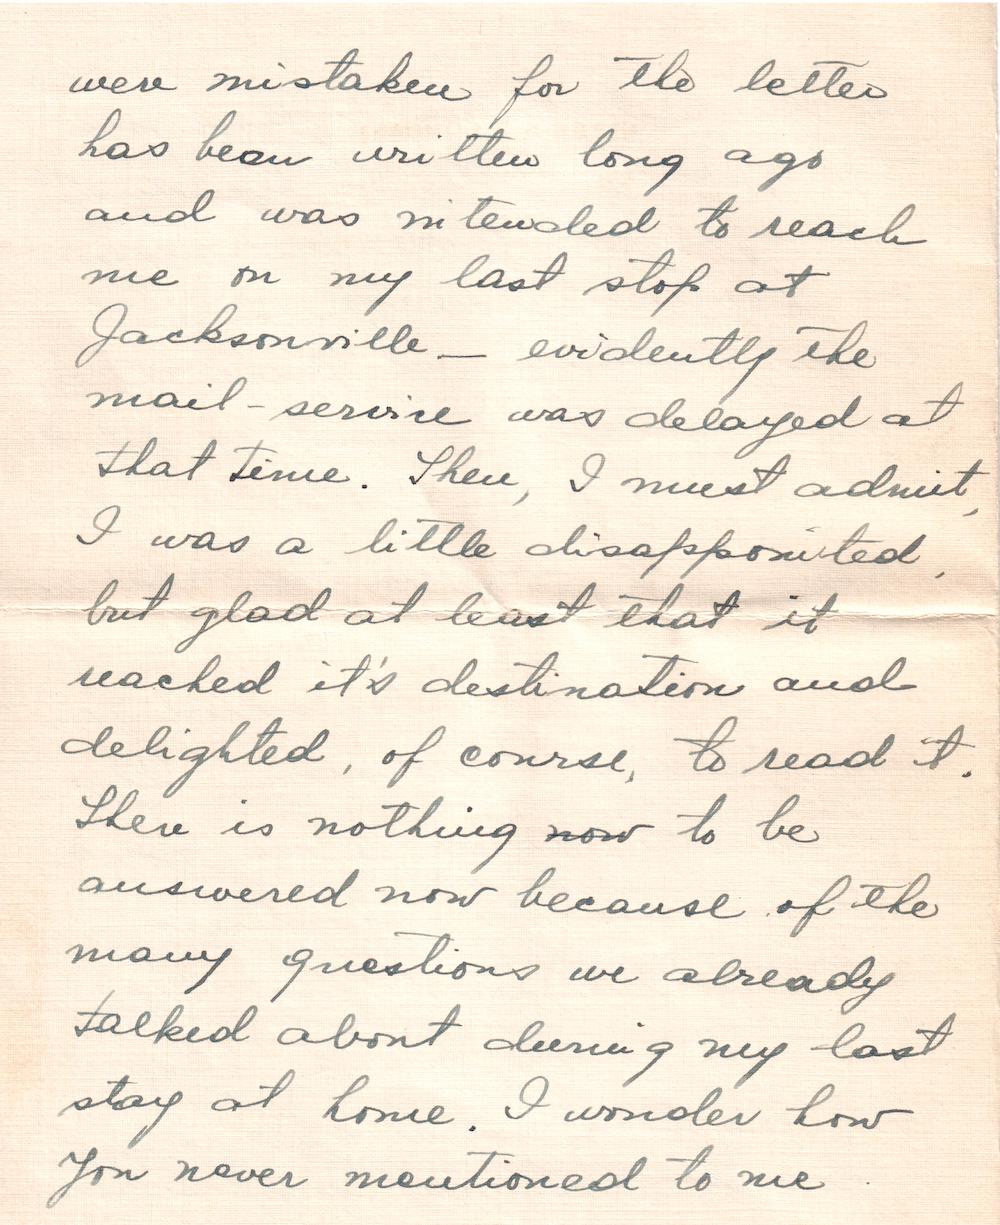 were mistaken for the letter
has been written long ago
and was intended to reach
me on my last stop at
Jacksonville — evidently the
mail-service was delayed at
that time. Then, I must admit,
I was a little disappointed,
but glad at least that it
reached it's destination and
delighted, of course, to read it.
There is nothing now to be
answered now because of the
many questions we already
talked about during my last
stay at home. I wonder how
you never mentioned to me